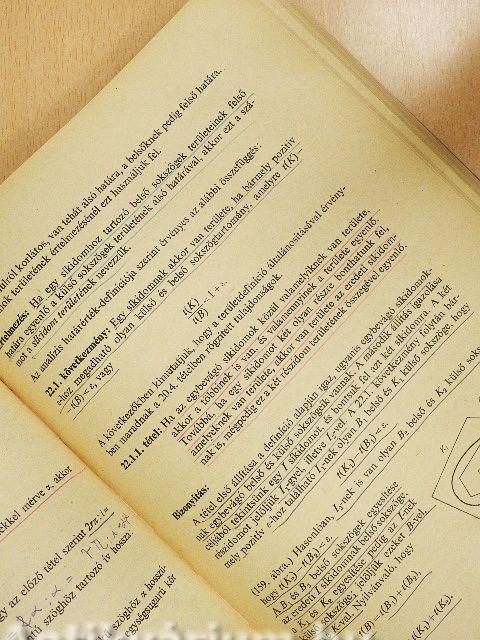 alulról korlátos, van tehát alsó határa, a belsőknek pedig felső határa.
nek területének értelmezésénél ezt használjuk fel.
Értelmezés: Ha egy síkidomhoz tartozó belső sokszögek területeinek felső
határa egyenlő a külső sokszögek területének alsó határával, akkor ezt a szá-
mot a síkidom területének nevezzük.
Az analízis határérték-definíciója szerint érvényes az alábbi összefüggés:
22.1. következmény: Egy síkidomnak akkor van területe, ha bármely pozitív
ε-hoz megadható olyan külső és belső sokszögtartomány, amelyre t(K)—
—t(B) < ε, vagy
t(K)
t(B) < 1 + ε.
A következőkben kimutatjuk, hogy a területdefiníció általánosításával érvény-
ben maradnak a 20.4. tételben rögzített tulajdonságok.
22.1.1. tétel: Ha az egybevágó síkidomok közül valamelyiknek van területe,
akkor a többinek is van, és valamennyinek a területe egyenlő.
Továbbá, ha egy síkidomot két olyan részre bonthatunk fel,
amelyeknek van területe, akkor van területe az eredeti síkidom-
nak is, mégpedig ez a két részidom területének összegével egyenlő.
Bizonyítás:
A tétel első állítása a definíció alapján igaz, ugyanis egybevágó síkidomok-
nak egybevágó belső és külső sokszögeik vannak. A második állítás igazolása
céljából tekintsünk egy I síkidomot, és bontsuk fel az két síkidomra. A két
részidomot jelöljük I₁-gyel, illetve I₂-vel. A 22.1. következmény folytán bár-
mely pozitív ε-hoz található I₁-nek olyan B₁ belső és K₁ külső sokszöge, hogy
t(K₁)—t(B₁) = ε.
(159. ábra.) Hasonlóan, I₂-nek is van olyan B₂ belső és K₂ külső
hogy t(K₂)—t(B₂) = ε.
A B₁ és B₂ belső sokszögek egyesítése
az eredeti I síkidomnak belső sokszöge.
K₁ és K₂ egyesítése pedig az I-nek
külső sokszöge, jelöljük ezeket B-vel,
Nyilvánvaló, hogy
t(B) = t(B₁) + t(B₂),
t(K₁) + t(K₂),
mérve x, akkor
az előző tétel szerint
szöghöz tartozó ív hossza:
szöghöz
egységsugarú kör